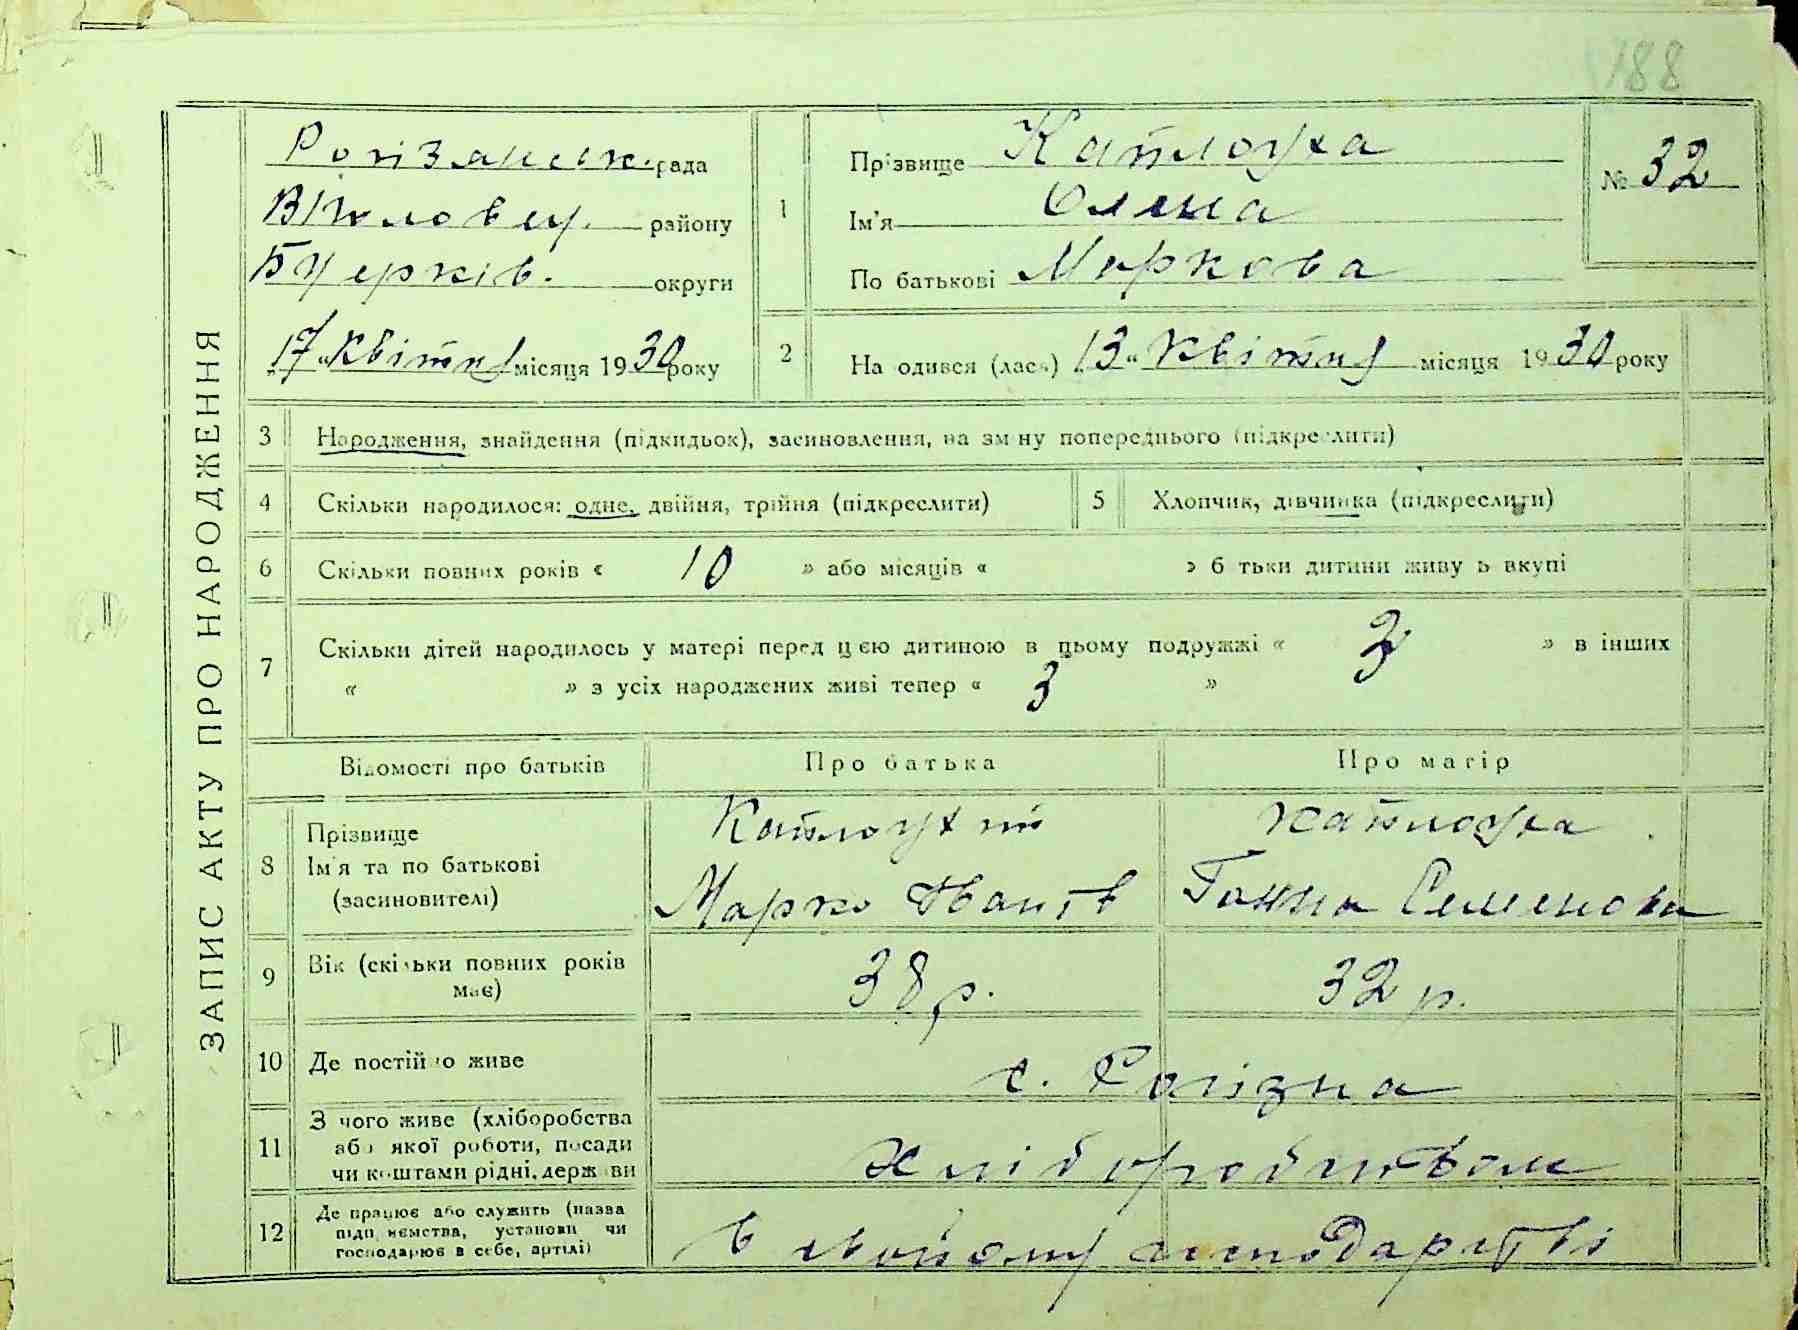 188
ЗАПИС АКТУ ПРО НАРОДЖЕННЯ
Рогізянськ. рада
району
округи
17 „Квітня місяця 1930 року
1
Прізвище Каплоуха
Ім'я Олена
По батькові Маркова
№ 32
2 На одився (лася) 13 „ Квітня місяця 1930 року
3 Народження, знайдення (підкидьок), засиновлення, на зміну попереднього (підкреслити)
4 Скільки народилося: одне, двійня, трійня (підкреслити) 5 Хлопчик, дівчинка (підкреслити)
6 Скільки повних років « 10 » або місяців « » б тьки дитини живу ь вкупі
7 Скільки дітей народилось у матері перед цею дитиною в цьому подружжі « 3 » в інших
« » з усіх народжених живі тепер « 3 »
Відомості про батьків Про батька Про матір
8 Прізвище
Ім'я та по батькові
(засиновителі)
Каплоухий Каплоуха
Марко Іванів Ганна Семенова
9 Вік (скільки повних років
має)
38 р. 32 р.
10 Де постійно живе с. Рогізна
11 З чого живе (хліборобства
або якої роботи, посади
чи коштами рідні, держ ви
Хліборобством
12 Де працює або служить (назва
підп иємства, установи чи
господарює в себе, артілі)
В свойому господарстві